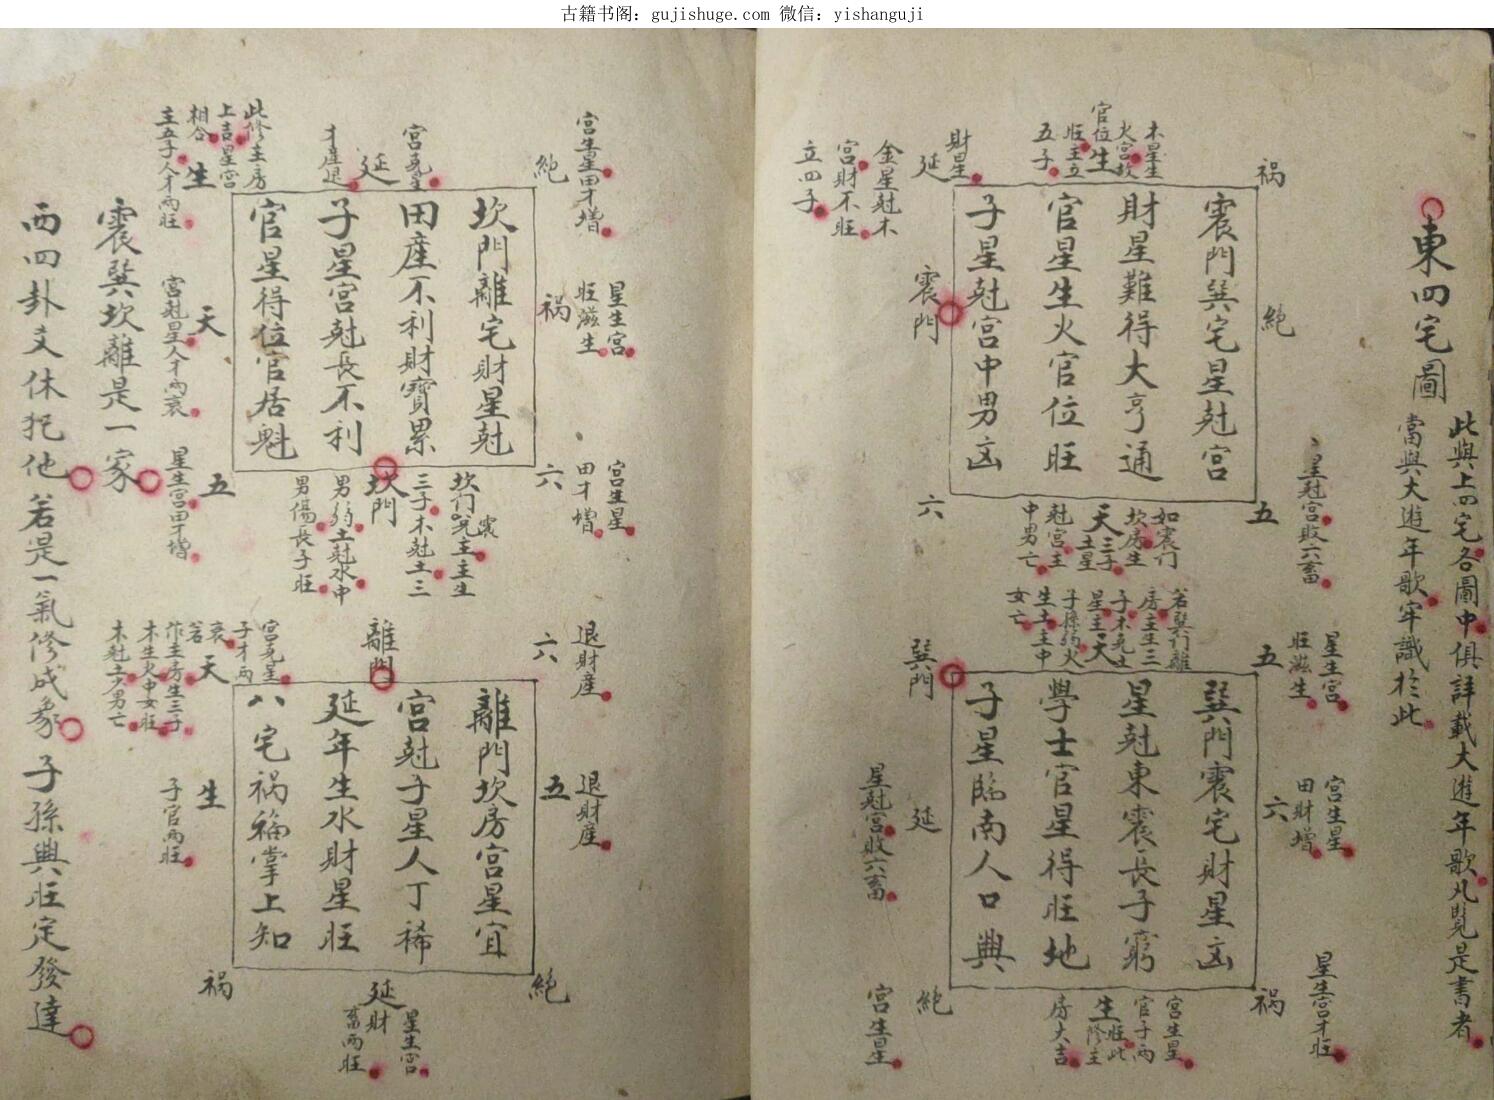 古籍书阁：gujishuge.com 微信：yishanguji
東四宅圖
此與上四宅各圖中俱詳載大遊年歌凡覽是書者
當與大遊年歌牢識於此
祸
絶
五
星尅宮敗六畜
木星生
火宮坎
官位生
旺主立
五子
財星
延
金星尅木
宮財不旺
立四子
震門
六
震門巽宅星尅宮
財星難得大亨通
官星生火官位旺
子星尅宮中男凶
如震门
坎房生
天三子
土星
尅宮主
中男亡
若巽门離
房主生三
子木尅土
星主天
子孫弱火
生土主中
女亡
五
星生宮
旺滋生
六
宮生星
田財增
祸
星生宮才旺
巽門
延
星尅宮敗六畜
絶
宮生星
巽門震宅財星凶
星尅東震長子窮
學士官星得旺地
子星臨南人口興
宮生星
官子兩
生旺此
修主
房大吉
絶
宮生星田才增
祸
星生宮
旺滋生
六
宮生星
田才增
宮尅星
延
才産退
此修主房
上吉星宮
相合
生
主五子人才兩旺
天
宮尅星人才兩衰
五
星生宮田才增
坎門離宅財星尅
田産不利財寶累
子星宮尅長不利
官星得位官居魁
坎门
震
主生
三子木尅土三
坎門
男弱土尅水中
男傷長子旺
離門
六
退財産
五
退財産
絶
宮尅星
子才兩
衰
天
若
作主房生三子
木生火中女旺
木尅土少男亡
生
子官兩旺
祸
離門坎房宮星宜
宮尅子星人丁稀
延年生水財星旺
八宅祸福掌上知
星生宮
延財
畜兩旺
震巽坎離是一家
西四卦爻休犯他
若是一氣修成象
子孫興旺定發達